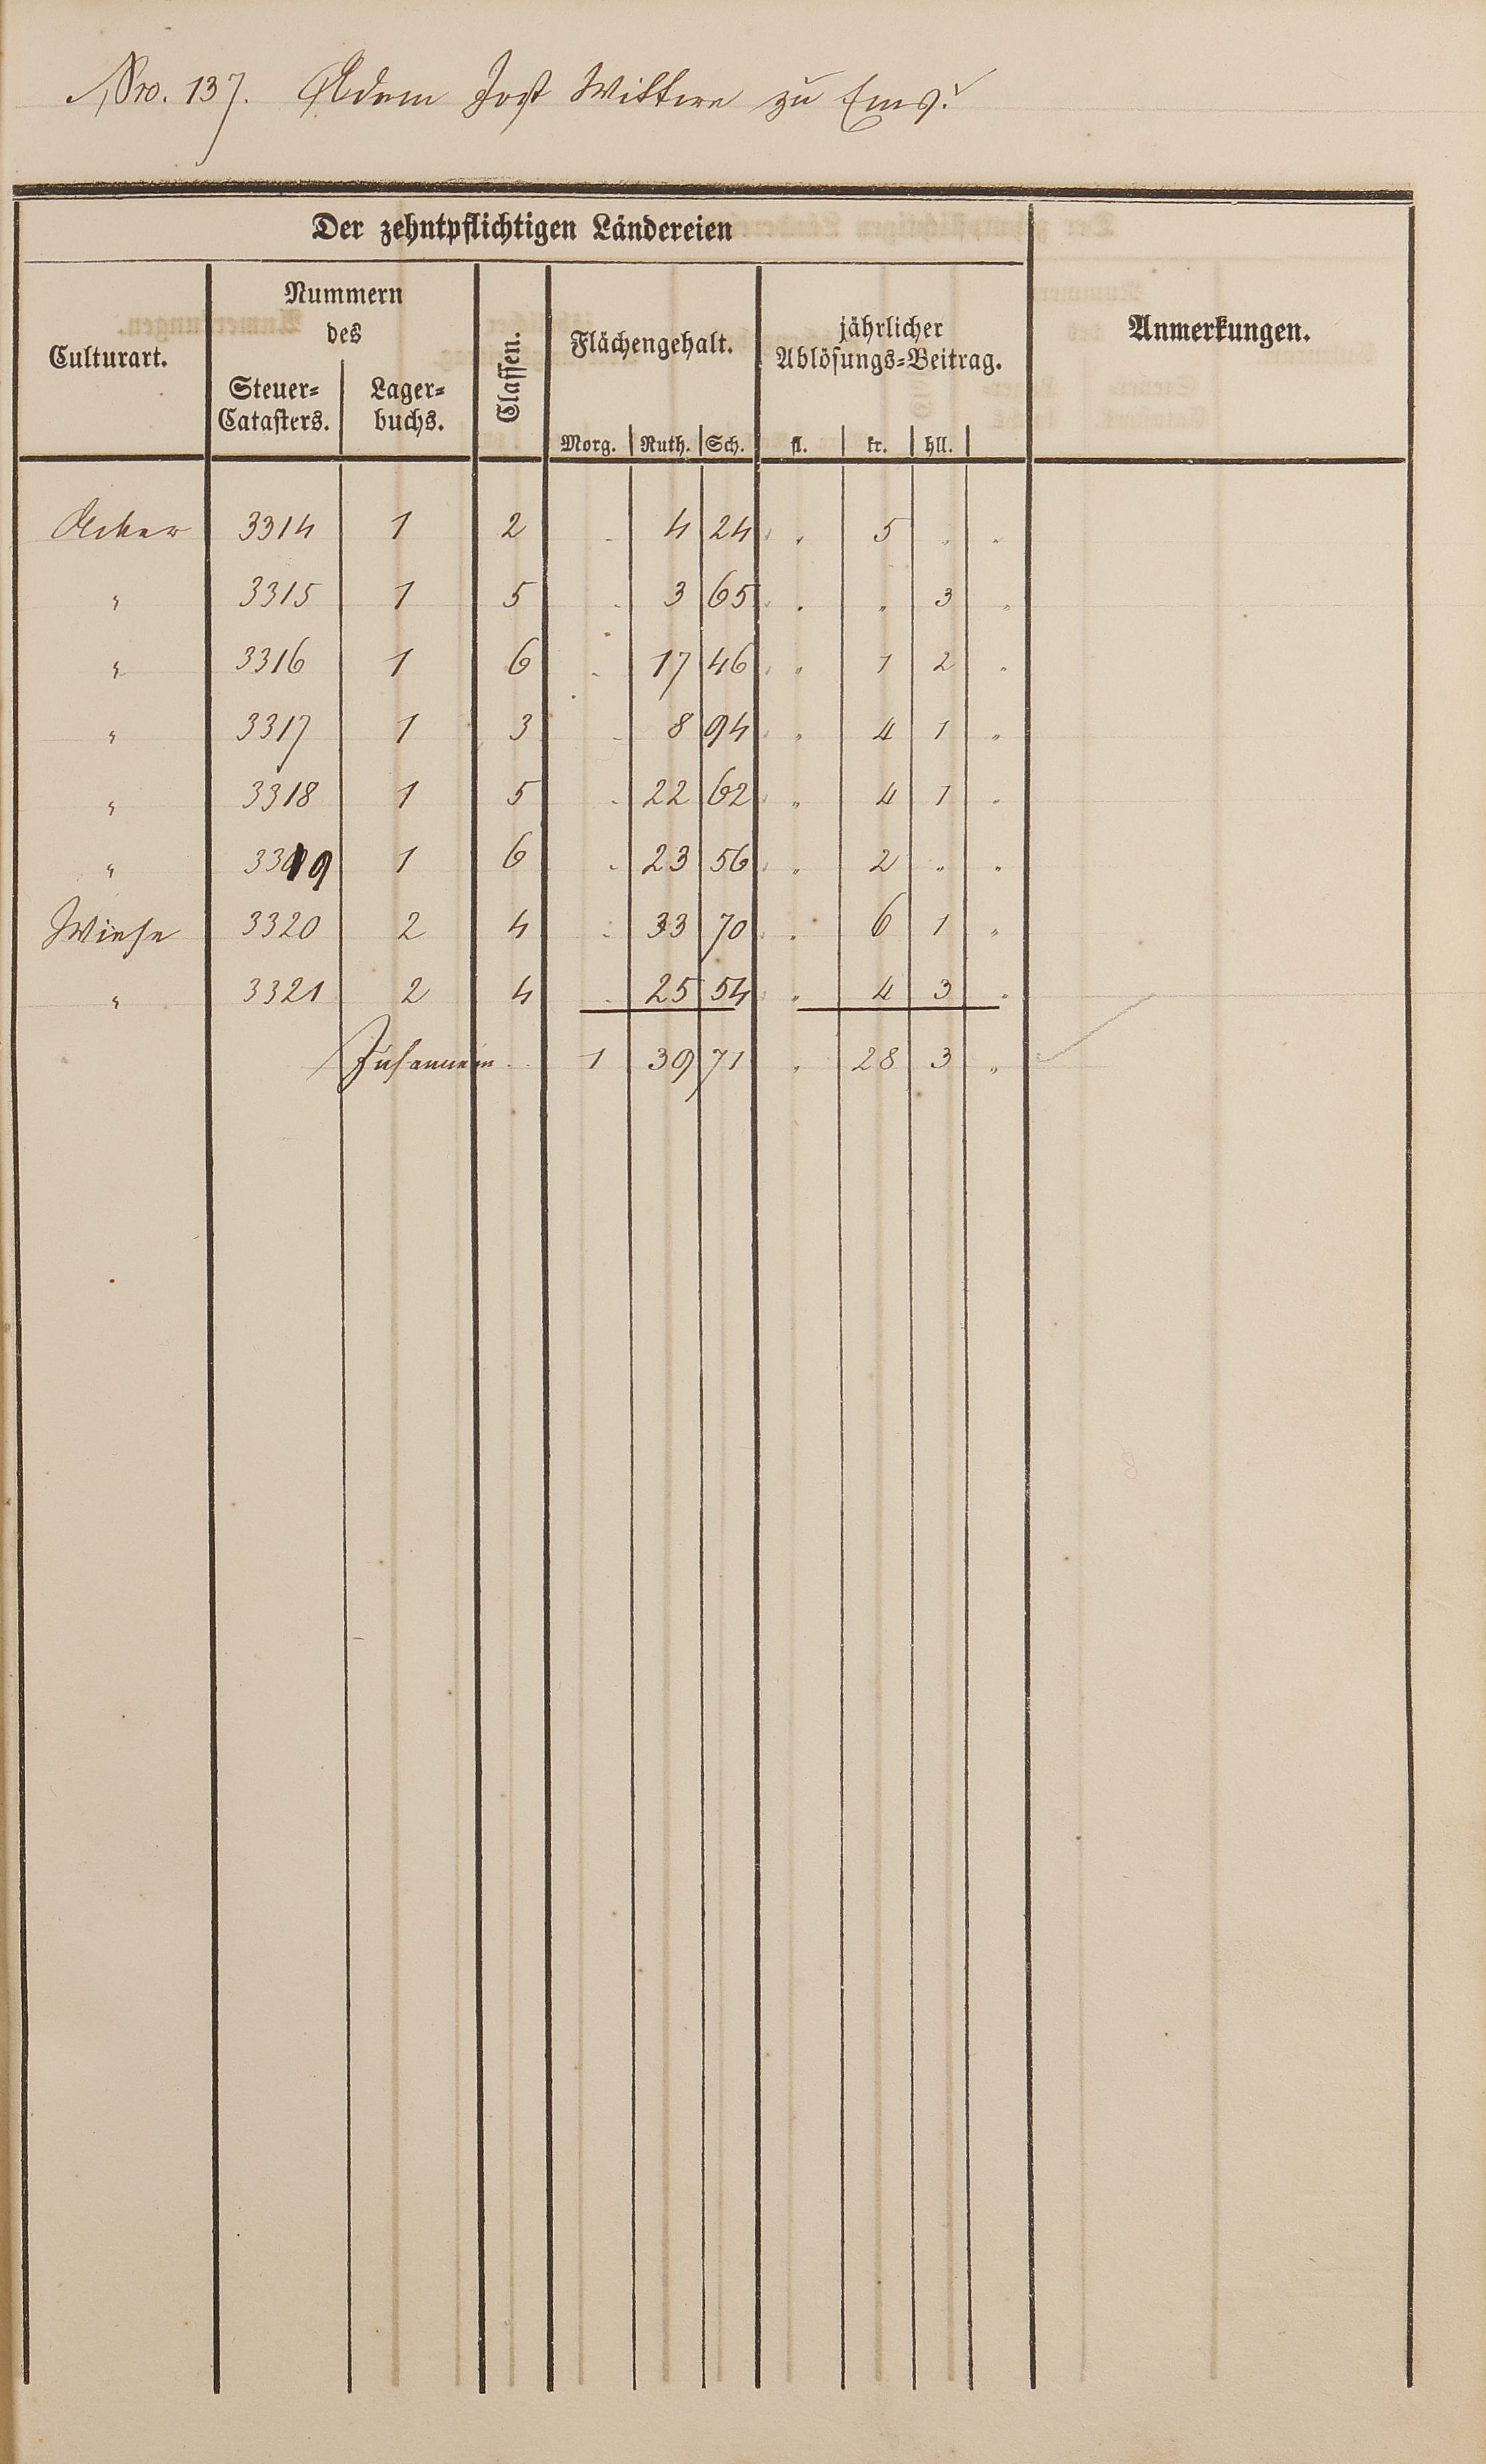 Nro. 137. Adam Jost Wittwe zu Ems.
Der zehntpflichtigen Ländereien
Culturart. Nummern des Classen. Flächengehalt. jährlicher Ablösungs=Beitrag. Anmerkungen.
Steuer=Catasters. Lager=buchs.
Morg. Ruth. Sch. fl. kr. hll.
Acker 3314 1 2 . 4 24 „ 5 „ „
„ 3315 1 5 . 3 65 „ „ 3 „
„ 3316 1 6 . 17 46 „ 1 2 „
„ 3317 1 3 . 8 94 „ 4 1 „
„ 3318 1 5 . 22 62 „ 4 1 „
„ 3319 1 6 . 23 56 „ 2 „ „
Wiese 3320 2 4 . 33 70 „ 6 1 „
„ 3321 2 4 . 25 54 „ 4 3 „
Zusammen . . 1 39 71 „ 28 3 „